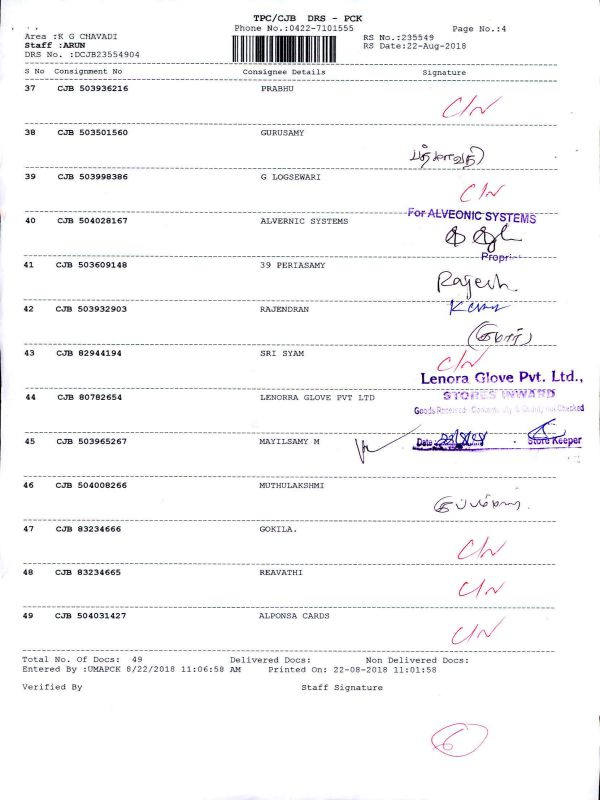 TPC/CJB DRS - PCK
Phone No.:0422-7101555 Page No.:4
Area :K G CHAVADI RS No.:235549
Staff :ARUN RS Date:22-Aug-2018
DRS No. :DCJB23554904
S No Consignment No Consignee Details Signature
37 CJB 503936216 PRABHU
C/N
38 CJB 503501560 GURUSAMY
39 CJB 503998386 G LOGSEWARI
C/N
For ALVEONIC SYSTEMS
40 CJB 504028167 ALVERNIC SYSTEMS
Propri
41 CJB 503609148 39 PERIASAMY
Rajesh
42 CJB 503932903 RAJENDRAN
43 CJB 82944194 SRI SYAM
C/N
Lenora Glove Pvt. Ltd.,
STORES INWARD
44 CJB 80782654 LENORRA GLOVE PVT LTD
Goods Received Checked
45 CJB 503965267 MAYILSAMY M
Date Store Keeper
46 CJB 504008266 MUTHULAKSHMI
47 CJB 83234666 GOKILA.
C/N
48 CJB 83234665 REAVATHI
C/N
49 CJB 504031427 ALPONSA CARDS
C/N
Total No. Of Docs: 49 Delivered Docs: Non Delivered Docs:
Entered By :UMAPCK 8/22/2018 11:06:58 AM Printed On: 22-08-2018 11:01:58
Verified By Staff Signature
6